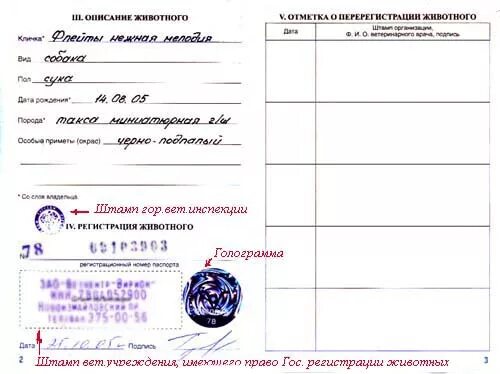 III. ОПИСАНИЕ ЖИВОТНОГО
Кличка* Флейты нежная мелодия
Вид собака
Пол сука
Дата рождения* 14.08.05
Порода* такса миниатюрная г/ш
Особые приметы (окрас) черно-подпалый
* Со слов владельца.
Штамп гор.вет.инспекции
IV. РЕГИСТРАЦИЯ ЖИВОТНОГО
№ 78
регистрационный номер паспорта
Голограмма
ЗАО "Ветцентр "Вирион"
Новоизмайловский
375-00-56
78
Дата 25.10.05г Подпись
Штамп вет.учреждения, имеющего право Гос. регистрации животных
2
V. ОТМЕТКА О ПЕРЕРЕГИСТРАЦИИ ЖИВОТНОГО
Дата
Штамп организации,
Ф. И. О. ветеринарного врача, подпись
3